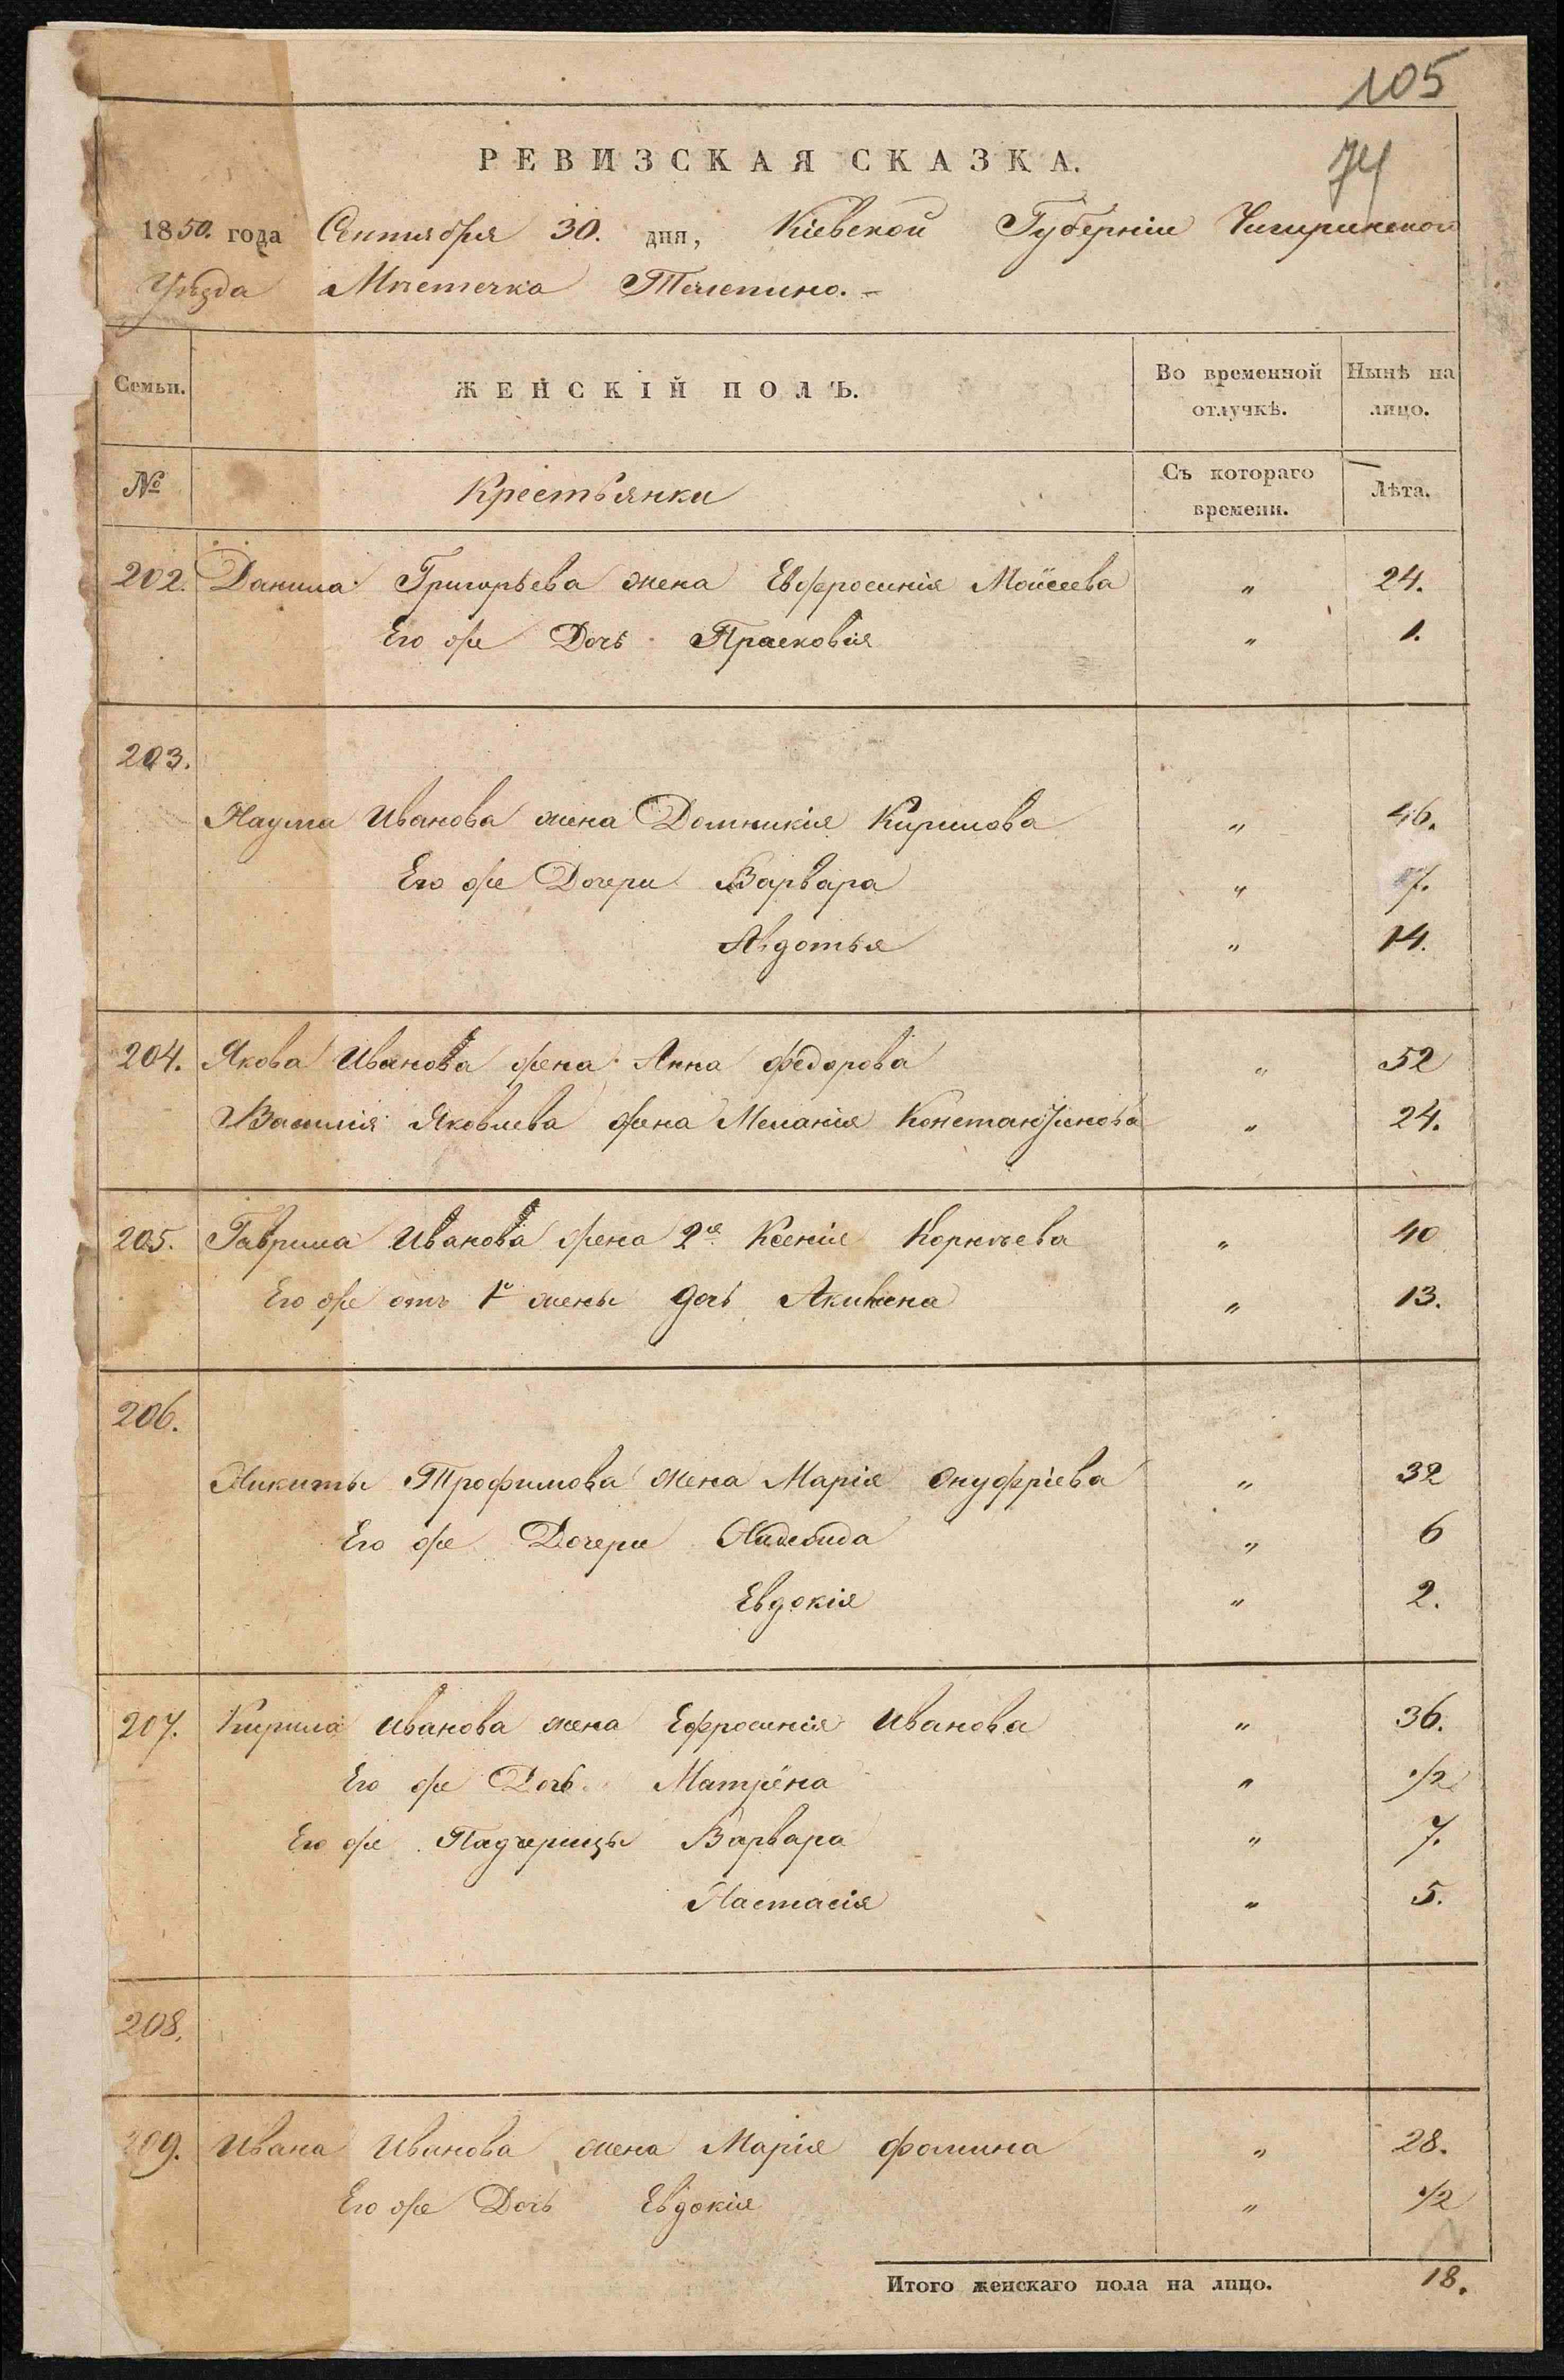 105
74
РЕВИЗСКАЯ СКАЗКА.
1850. года Сентября 30. дня, Кіевской Губерніи Чигиринской
Уѣзда Мѣстечка Телепино.
Семьи. ЖЕНСКІЙ ПОЛЪ. Во временной отлучкѣ. Нынѣ на лицо.
№ Крестьянки Съ котораго времени. Лѣта.
202. Данила Григорьева жена Евфросинія Моисеева " 24.
Его же Дочь Прасковія " 1.
203.
Наума Иванова жена Домникія Кирилова " 46.
Его же Дочери Варвара " 7.
Авдотья " 14.
204. Якова Иванова жена Анна Федорова " 52
Василія Яковлева жена Меланія Константинова " 24.
205. Гаврила Иванова жена 2я Ксенія Корнѣева " 40
Его же отъ 1й жены дочь Акилина " 13.
206.
Никиты Трофимова жена Марія Онуфріева " 32
Его же Дочери " 6
Евдокія " 2.
207. Кирила Иванова жена Ефросинія Иванова " 36.
Его же Дочь Матрёна " 1/2
Его же Падчерицы Варвара " 7.
Настасія " 5.
208.
209. Ивана Иванова жена Марія Фомина " 28.
Его же Дочь Евдокія " 1/2
Итого женскаго пола на лицо. 18.